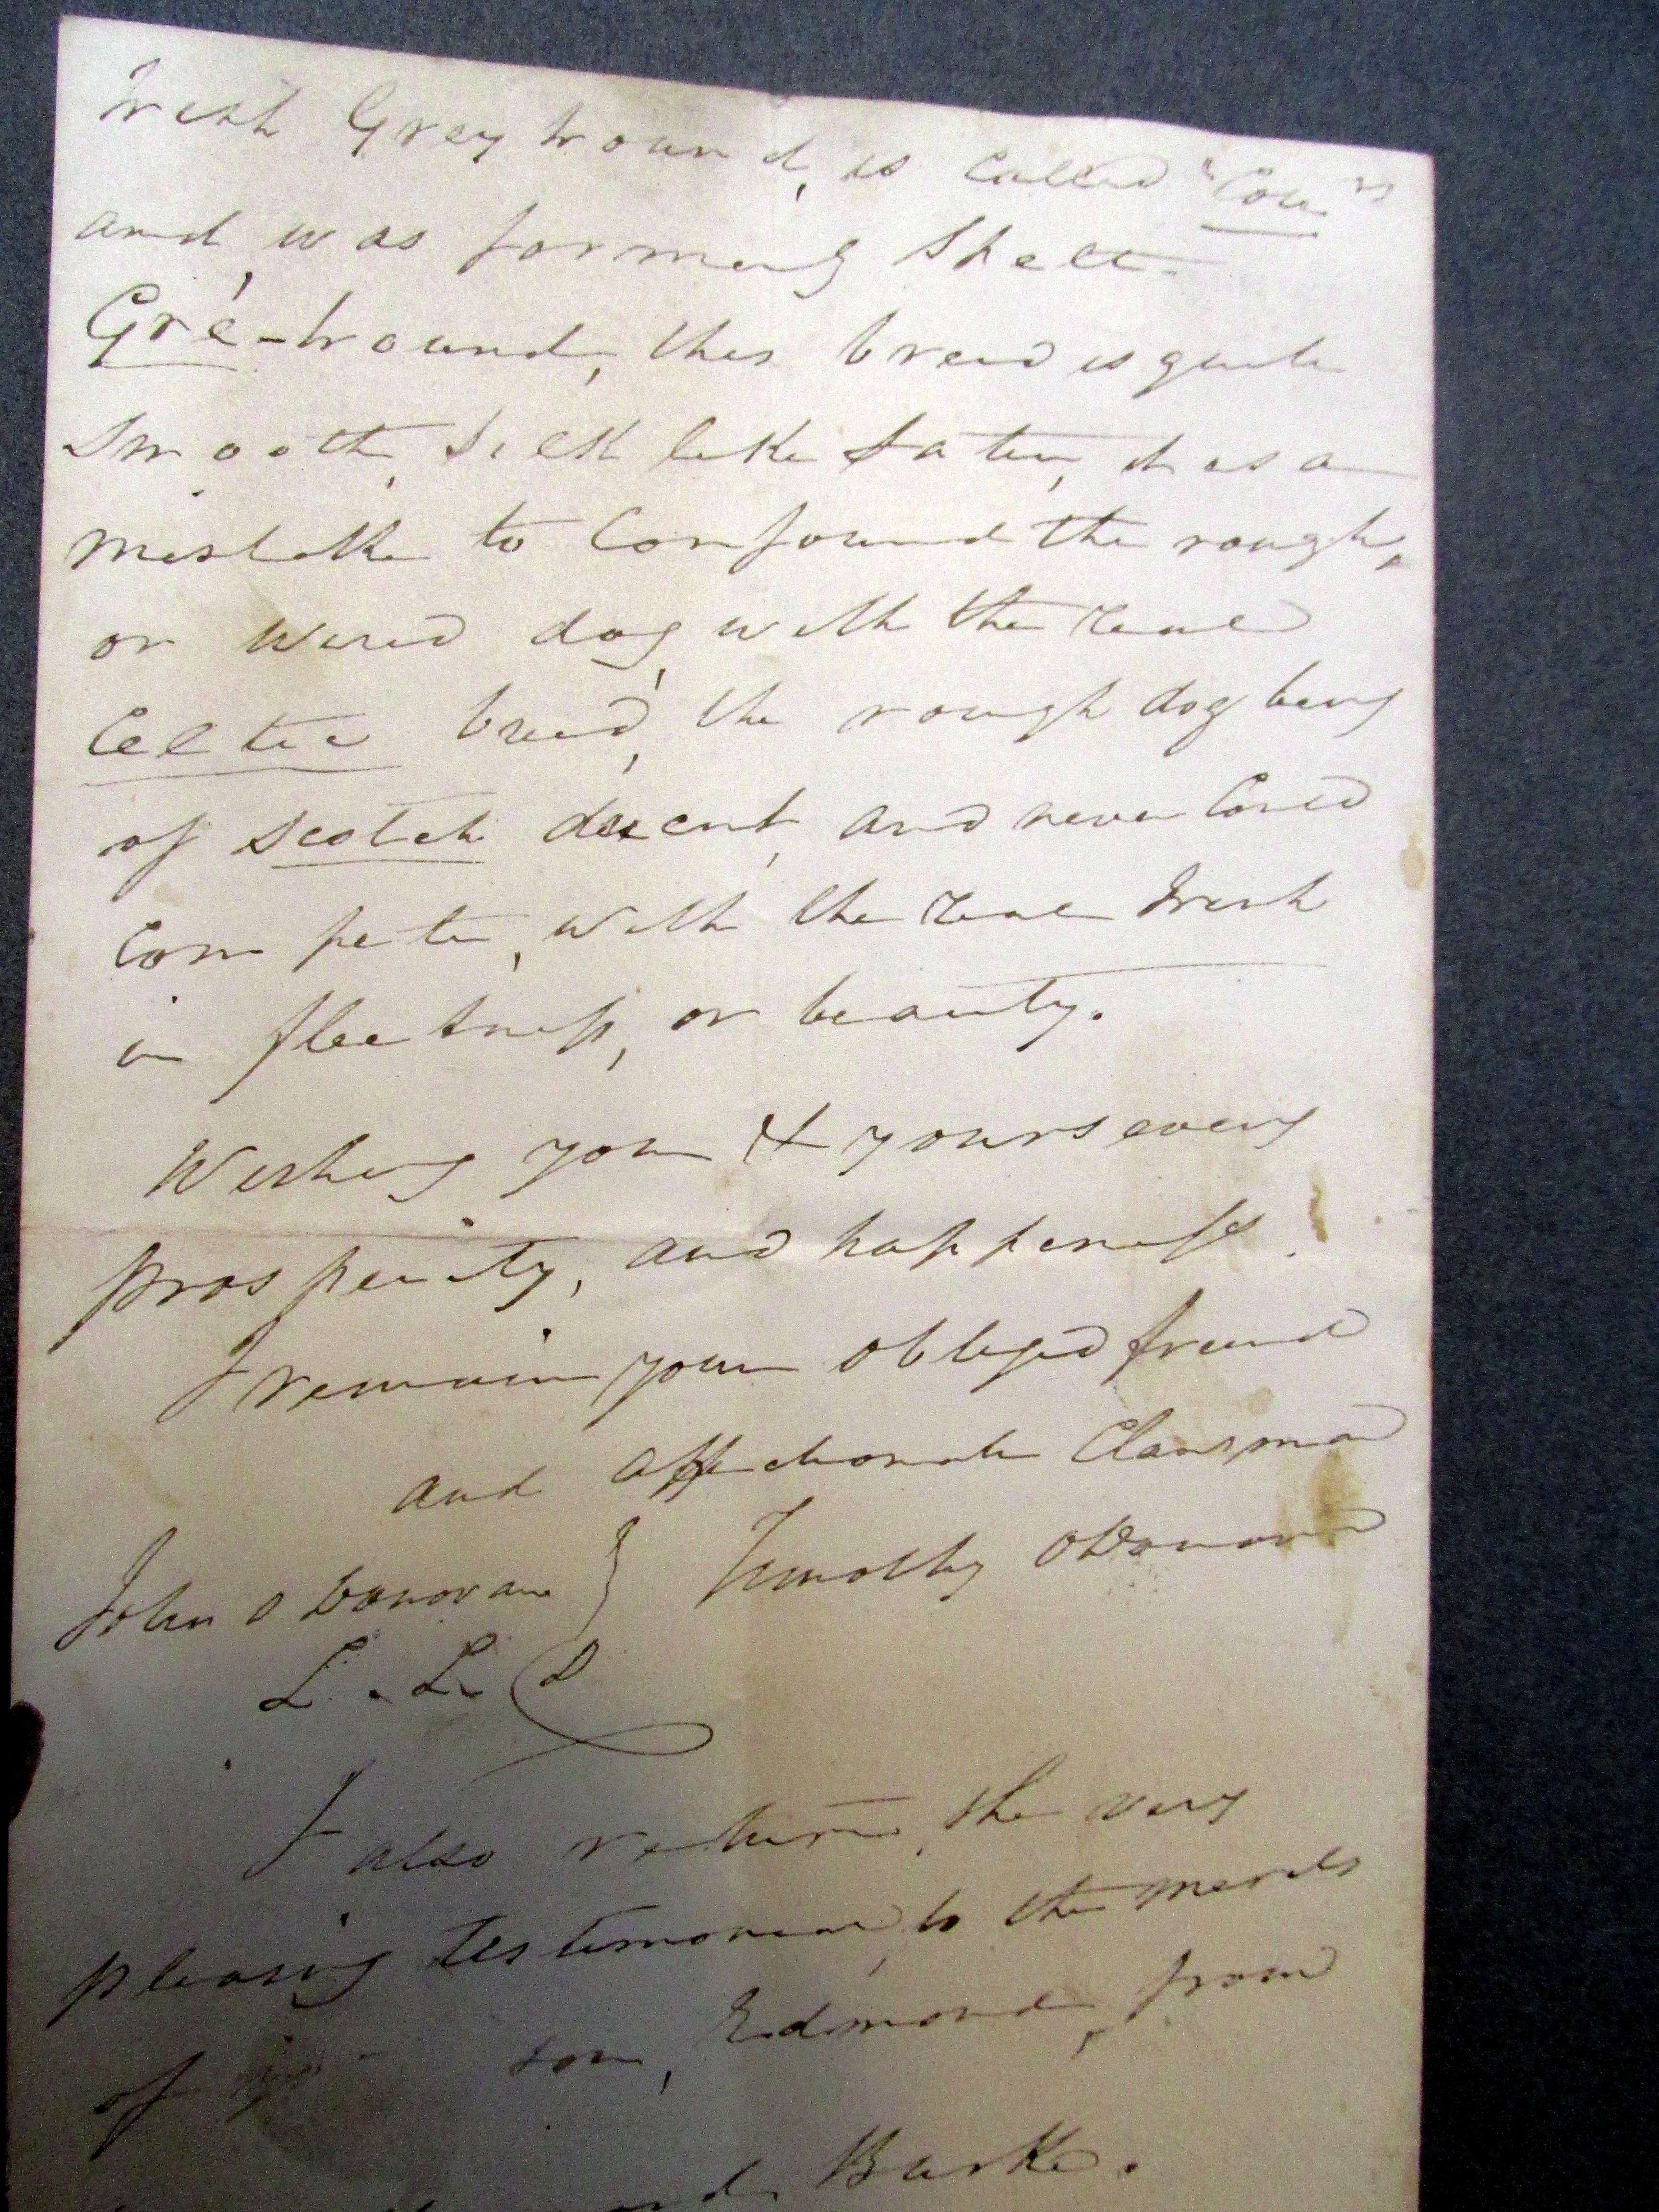 Irish Greyhound, is called "Cou"
and, was formerly Spelt.
Gré-hound, this breed is quite
Smooth, Silk like Satin, it is a
mistake to Confound the rough,
or wired dog, with the real
Celtic breed, the rough dog being
of Scotch descent, and never Could
Compete, with the real Irish
in fleetness, or beauty.
Wishing you & yours every
prosperity, and happiness.
I remain your obliged friend
and affectionate Clansman
John O Donovan } Timothy O Donovan
L. L. D
I also return, the very
pleasing testimonial, to the merits
of son, Edmond, from
Burke.